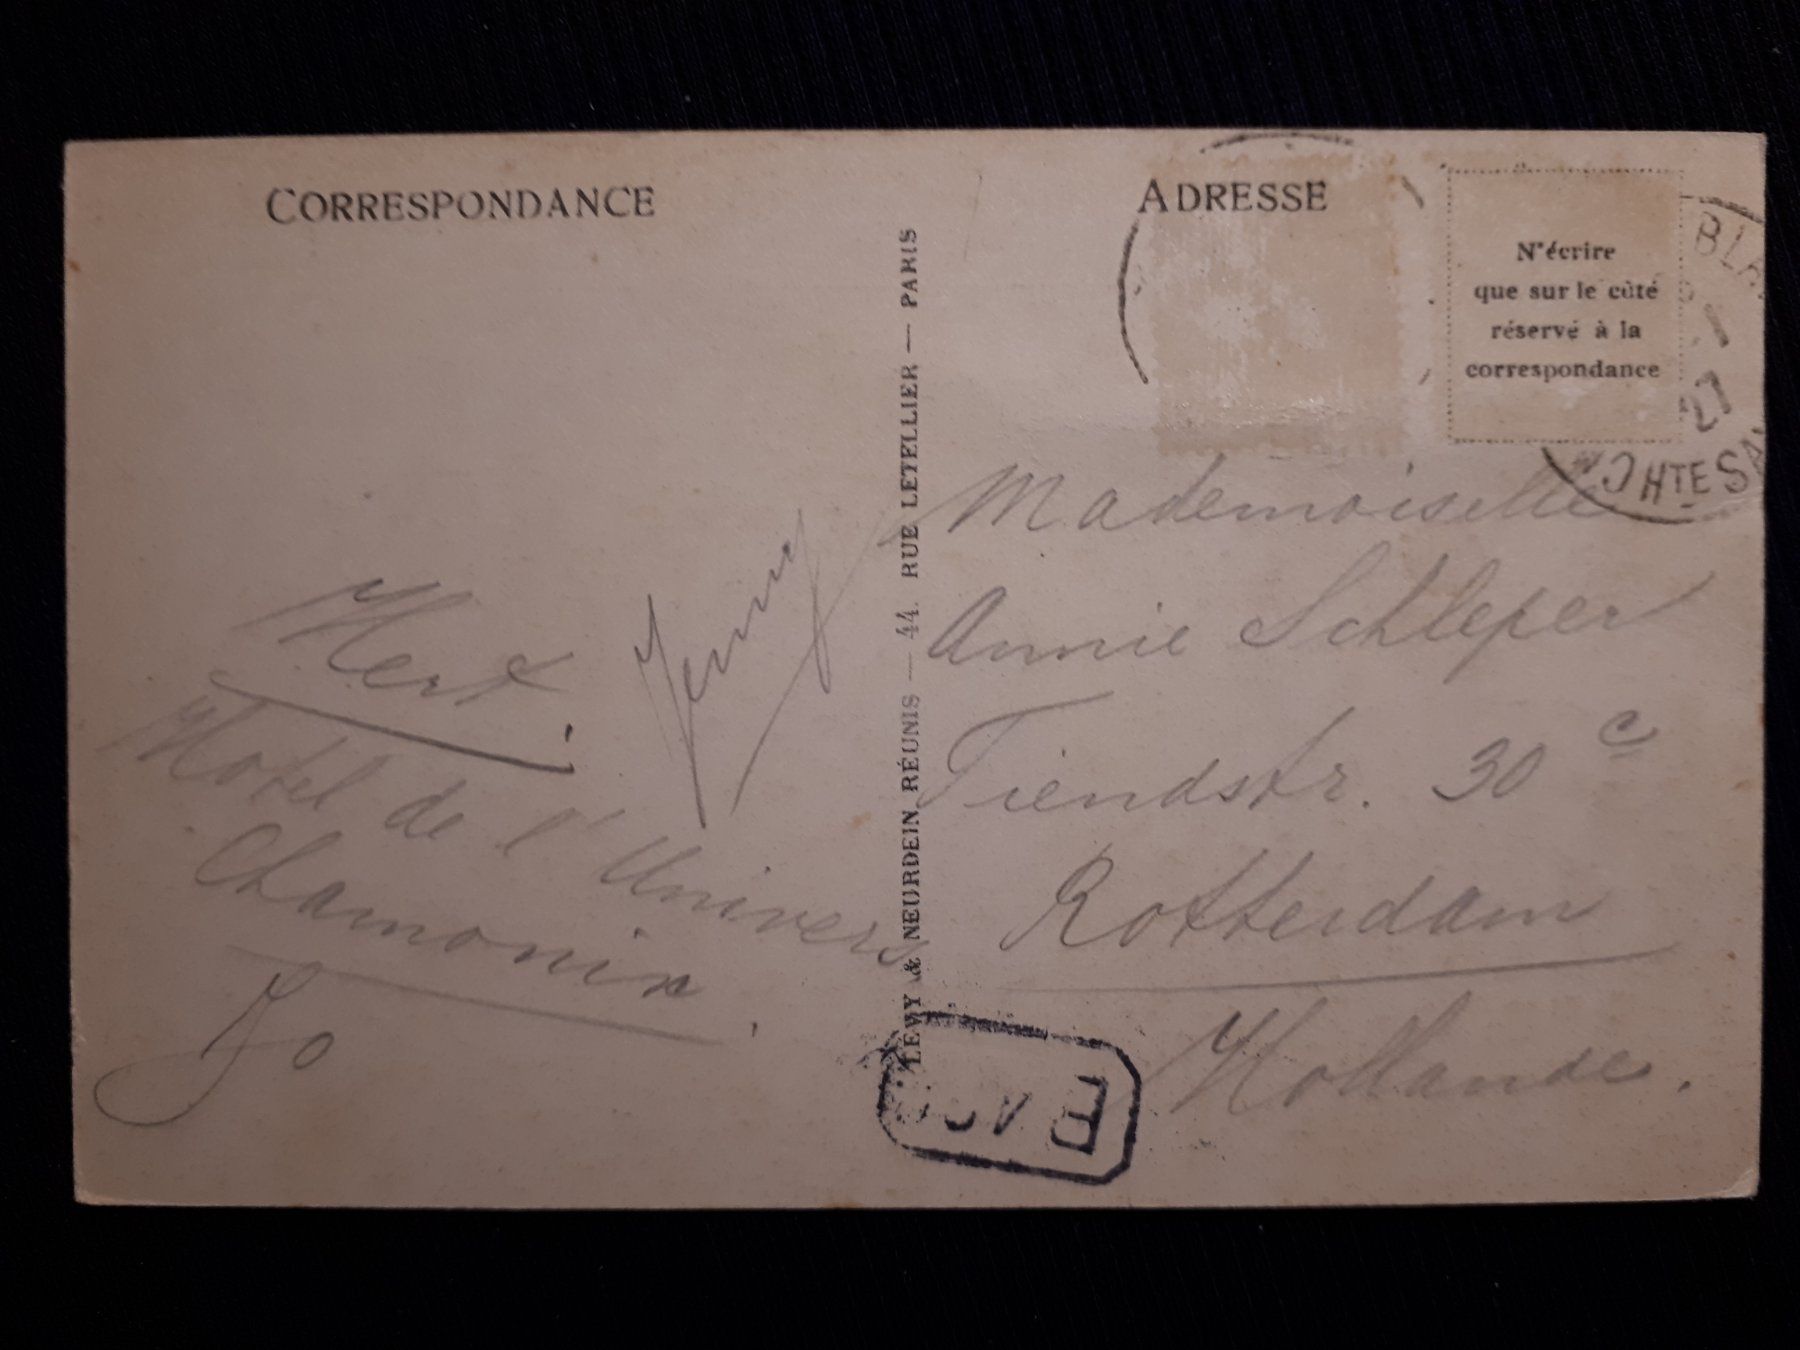 CORRESPONDANCE
Jenny
Hotel de l'Univers
Chamonix
Jo
LEVY & NEURDEIN RÉUNIS — 44, RUE LETELLIER — PARIS
ADRESSE
N'écrire
que sur le côté
réservé à la
correspondance
27
HTE SA
Mademoiselle
Annie Schleper
Tiendstr. 30 c
Rotterdam
Hollande.